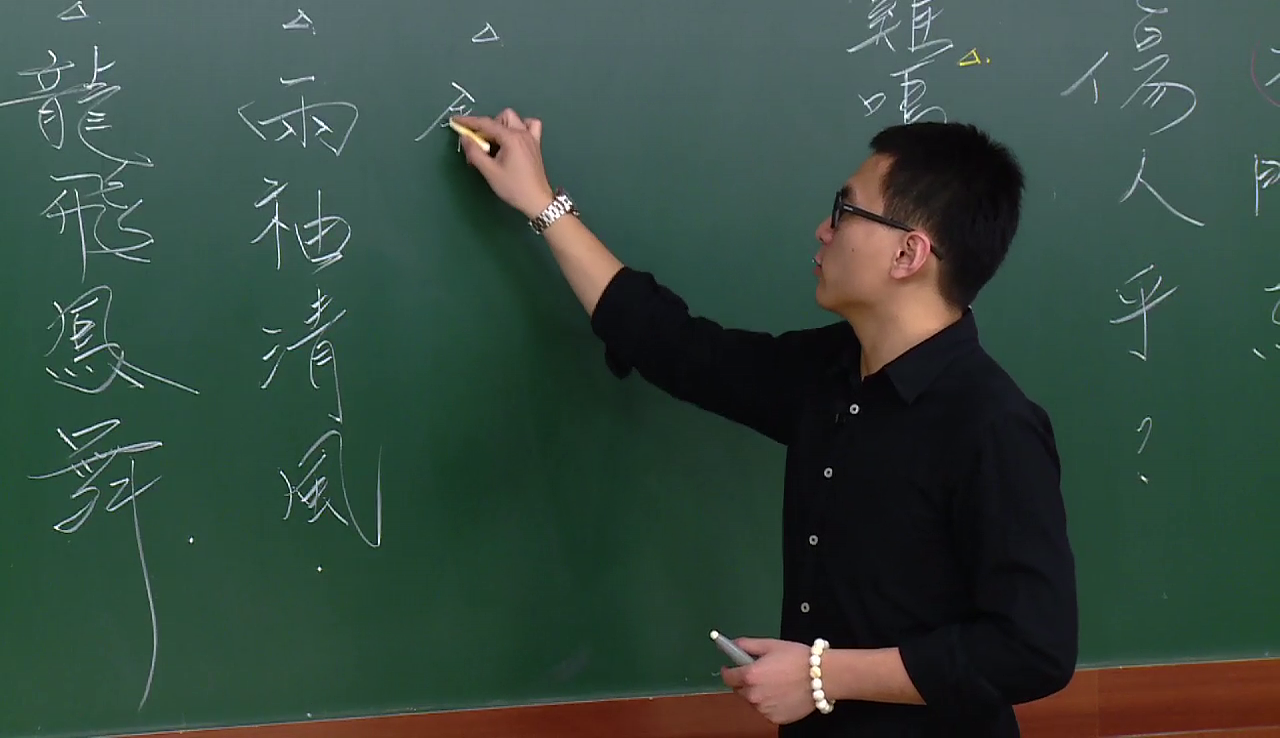 傷人乎?
雞鳴
兩袖清風.
龍飛鳳舞.